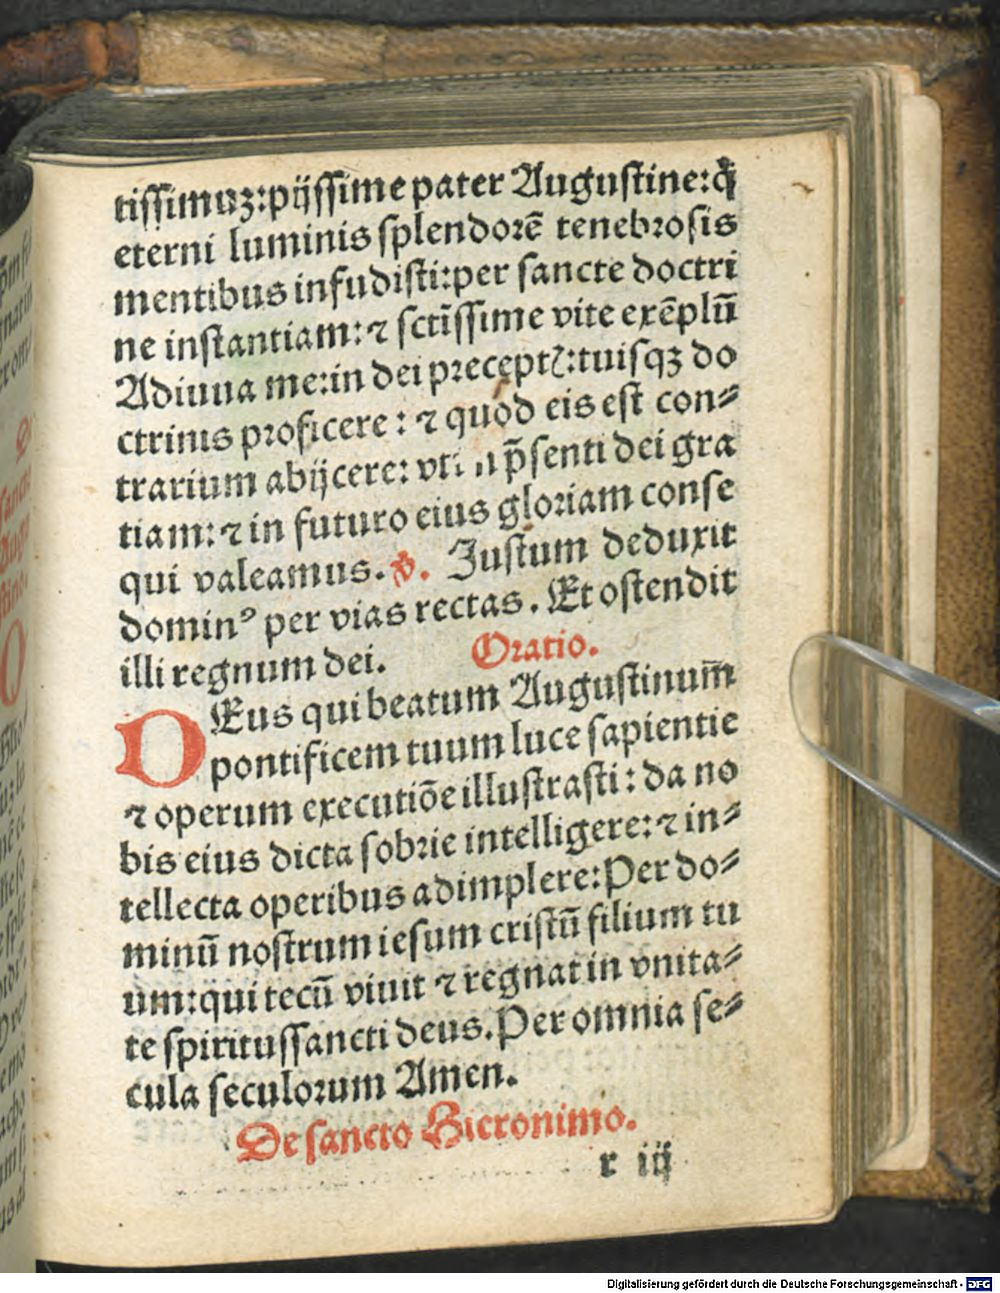 tissimuʒ:pijssime pater Augustine:q̃
eterni luminis splendorē tenebrosis
mentibus infudisti:per sancte doctri
ne instantiam: ⁊ sctīssime vite exēplū
Adiuua me:in dei preceptꝭ:tuisqʒ do
ctrinis proficere: ⁊ quod eis est con⸗
trarium abijcere: p̄senti dei gra
tiam: ⁊ in futuro eius gloriam conse
qui valeamus. ℣. Justum deduxit
dominꝰ per vias rectas. Et ostendit
illi regnum dei. Oratio.
DEus qui beatum Augustinum̄
pontificem tuum luce sapientie
⁊ operum executiōe illustrasti: da no
bis eius dicta sobrie intelligere: ⁊ in⸗
tellecta operibus adimplere: Per do⸗
minū nostrum iesum cristū filium tu
um: qui tecū viuit ⁊ regnat in vnita⸗
te spiritussancti deus. Per omnia se⸗
cula seculorum Amen.
De sancto Hieronimo.
r iij
Digitalisierung gefördert durch die Deutsche Forschungsgemeinschaft - DFG